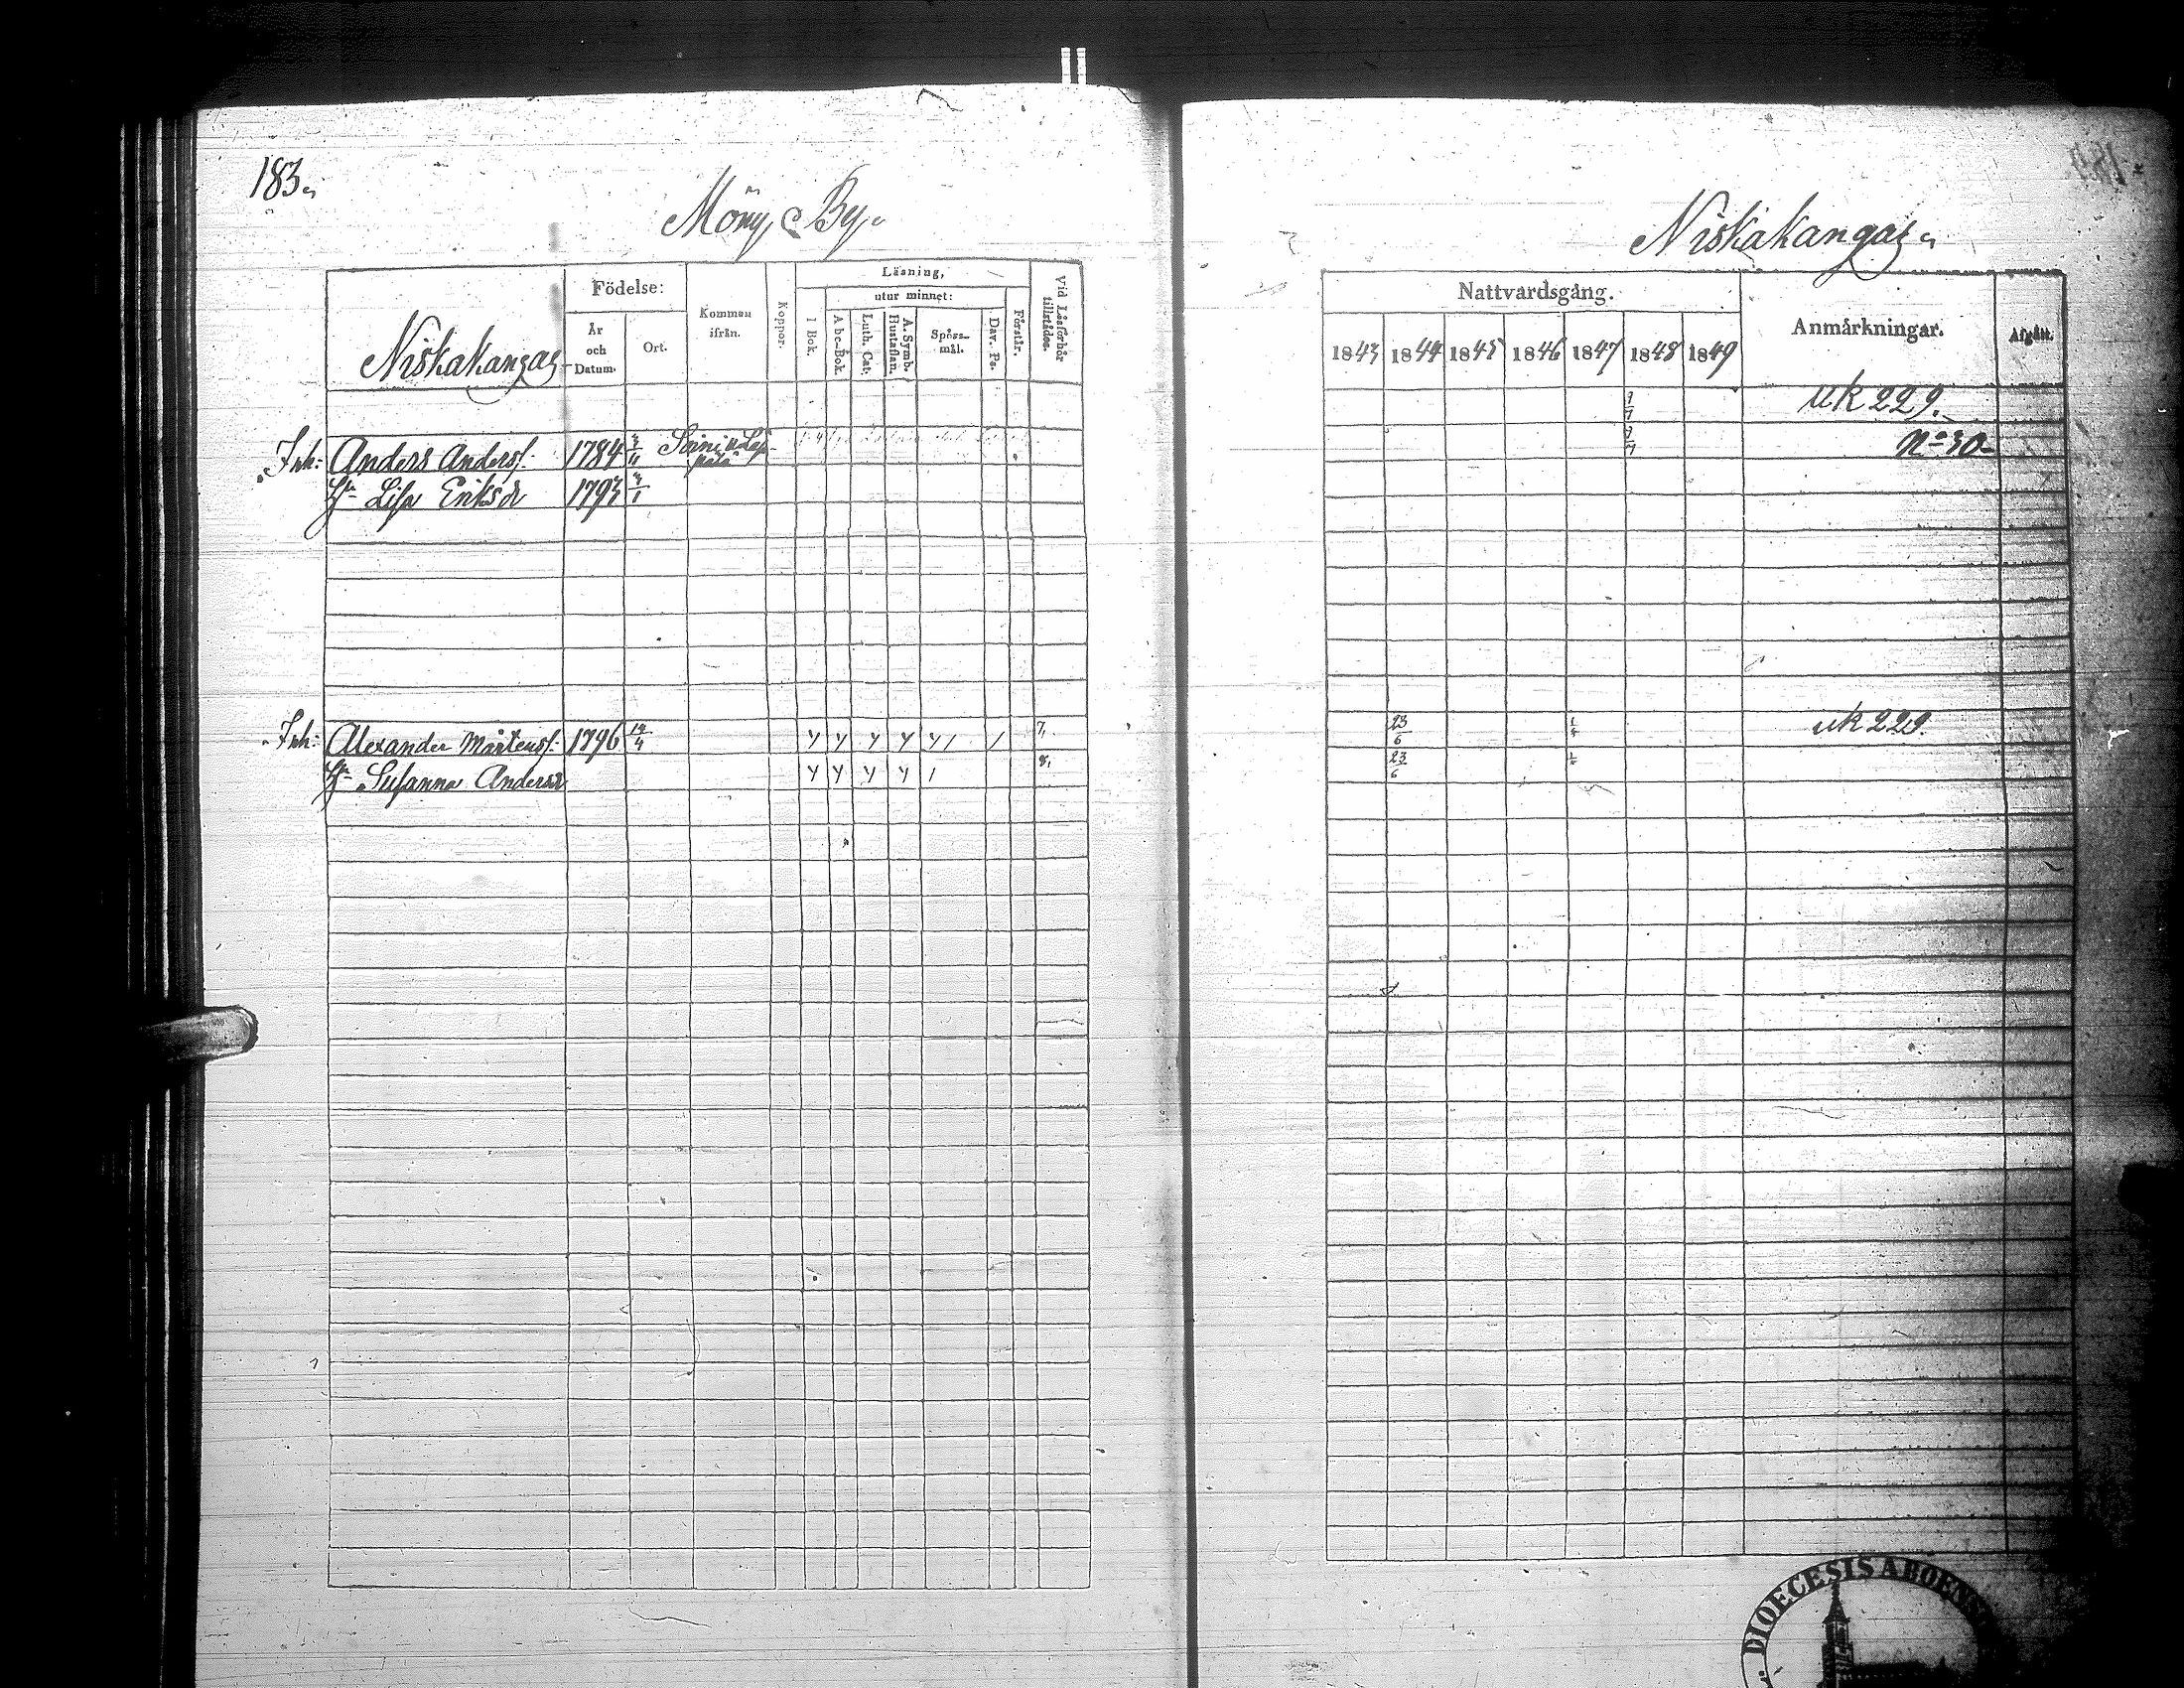 183.
Möny By.
Niskakangas
Födelse:
År och Datum.
Ort.
Kommen ifrån.
Koppor.
Läsning,
utur minnet:
I Bok.
Abc-Bok.
Luth. Cat.
A. Symb. Hustaflan.
Spörsmål.
Dav. Ps.
Förstår.
Vid Läsförhör tillstädes.
Inh: Anders Anders: 1784 Soini
Hu Lisa Eriks dr 1793
Inh: Alexander Mårtens: 1796 14/4
Hu Susanna Anders dr
Niskakangas
Nattvardsgång.
1843 1844 1845 1846 1847 1848 1849
Anmärkningar.
Afgått.
uk 229.
No 30
23/6 uk 229.
23/6
DIOECESIS ABOENS